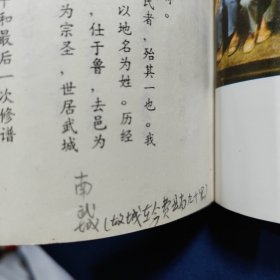 民者，殆其一也。我
以地名为姓。历经
，仕于鲁，去邑为
为宗圣，世居武城
和最后一次修谱
南武城(故城在今费九十里)